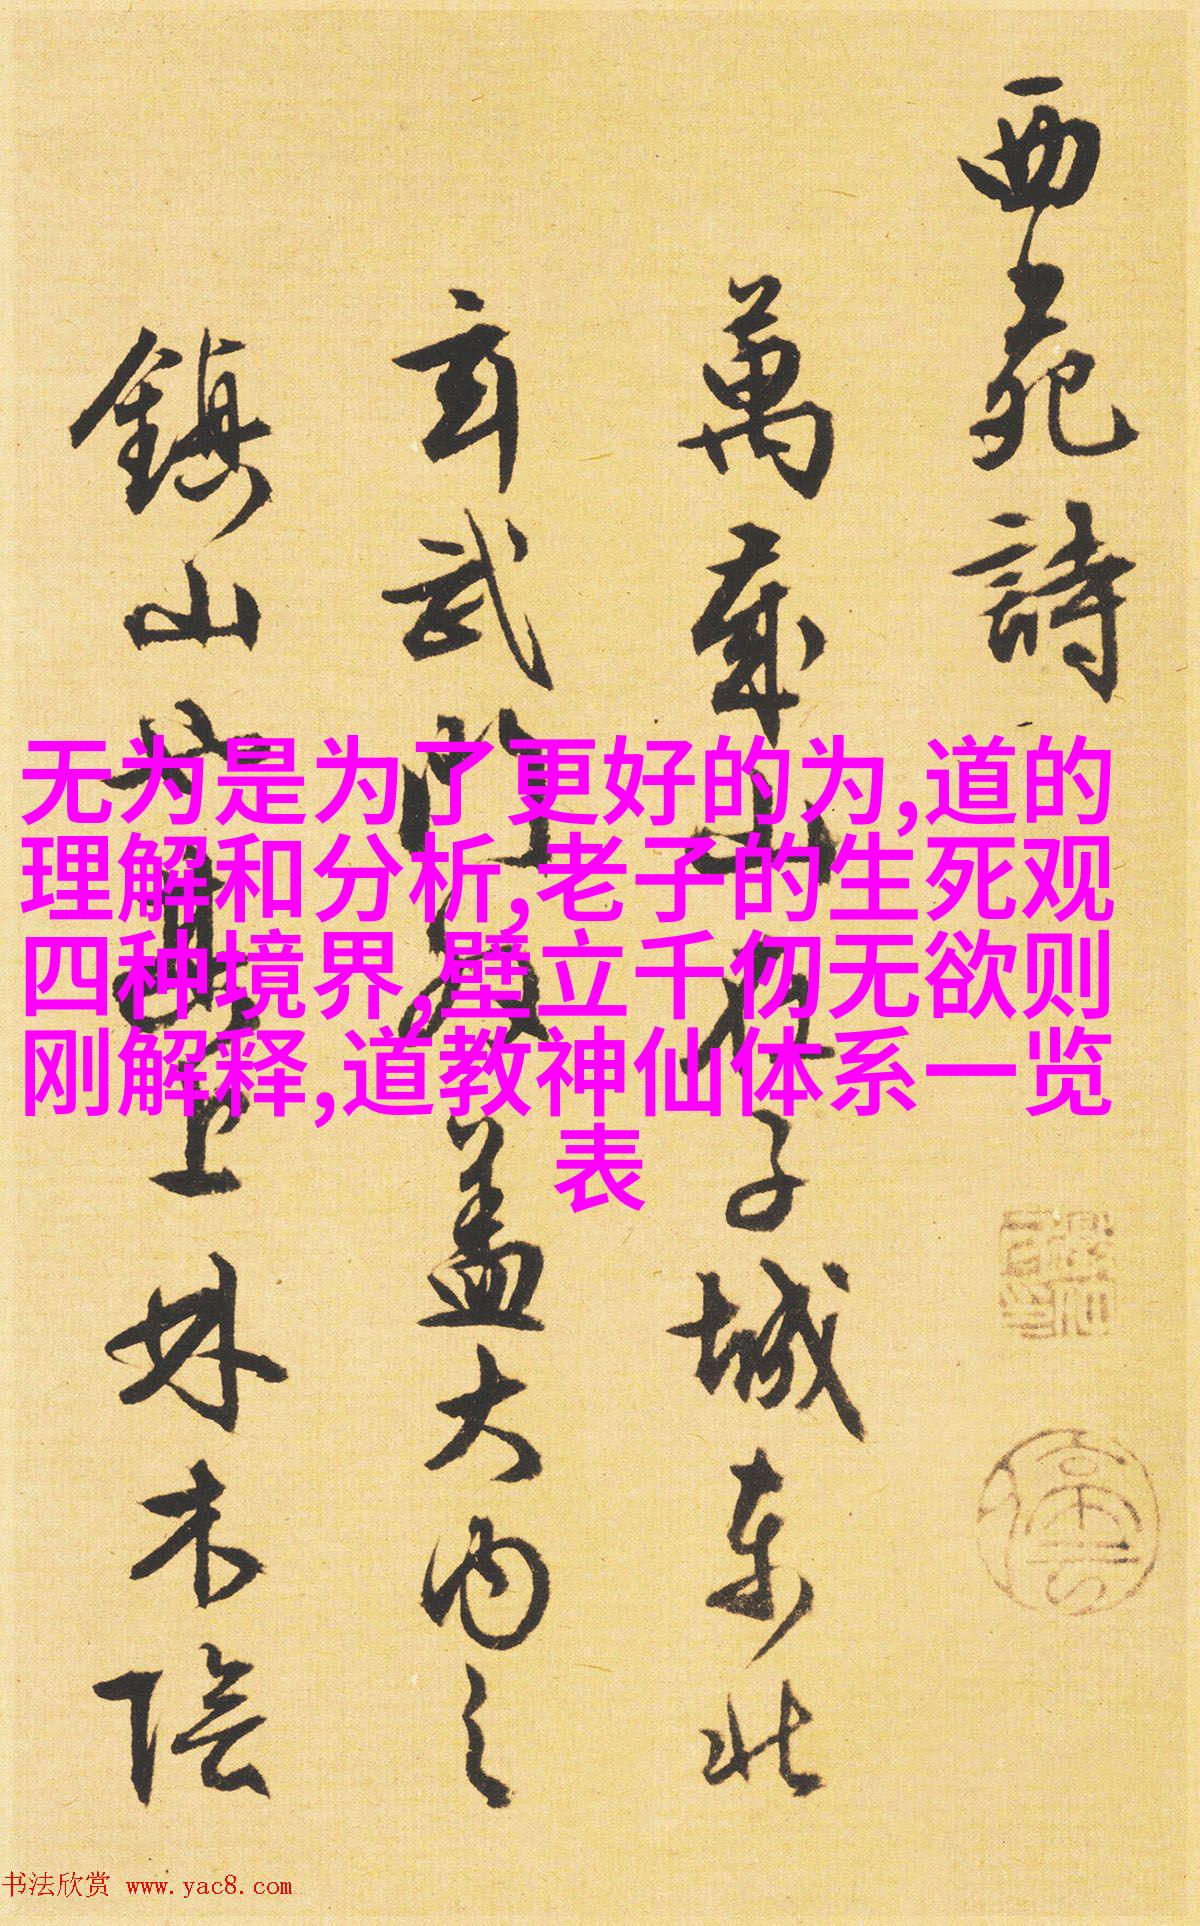 西苑詩
萬歲山在子城東北
玄武門外蓋大內之
鎮山也其上林木陰
无为是为了更好的为,道的
理解和分析,老子的生死观
四种境界,壁立千勿无欲则
刚解释,道教神仙体系一览
表
书法欣赏 www.yac8.com